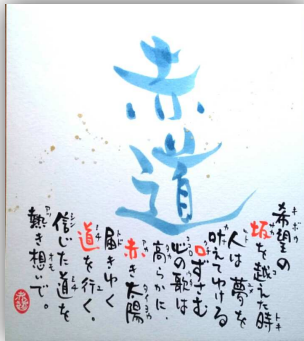 赤道
希望の
坂を越えた時
人は夢を
叶えてゆける
口ずさむ
心の歌は
高らかに、
赤き太陽
届きゆく
道を行く。
信じた道を
熱き想いで。